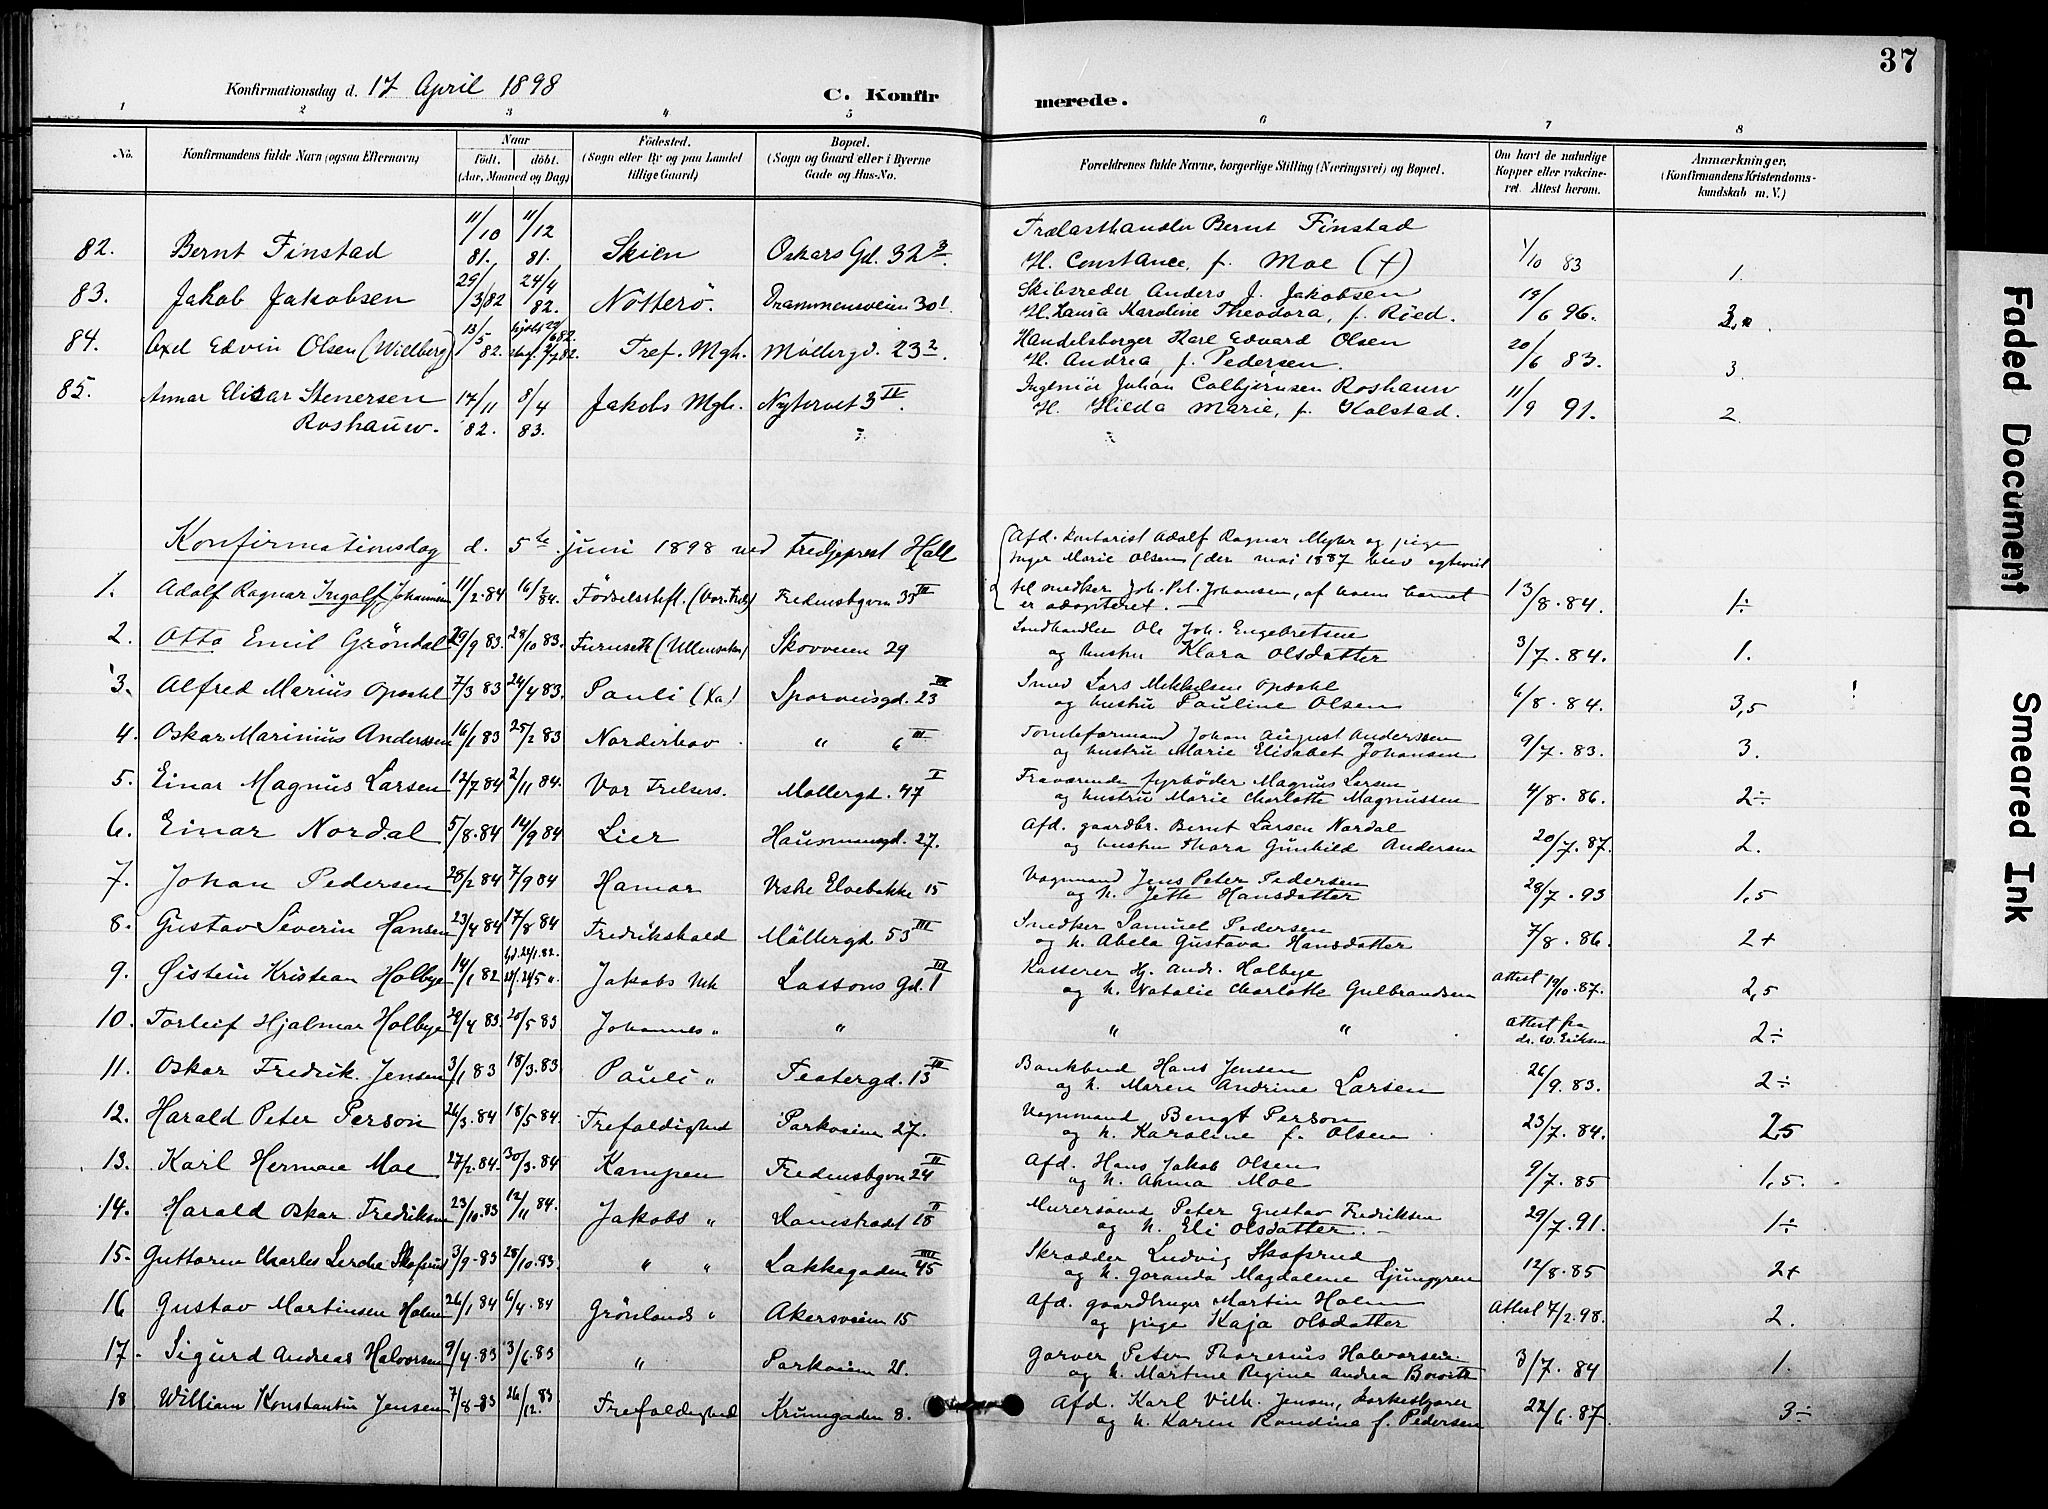 37
Konfirmationsdag d. 17 April 1898 C. Konfirmerede.
1 2 3 4 5 6 7 8
No. Konfirmandens fulde Navn (ogsaa Efternavn) Naar født. døbt. (Aar, Maaned og Dag) Fødested. (Sogn eller By og paa Landet tillige Gaard) Bopæl. (Sogn og Gaard eller i Byerne Gade og Hus-No. Forældrenes fulde Navne, borgerlige Stilling (Næringsvei) og Bopæl. Om havt de naturlige Kopper eller vaccineret. Attest herom. Anmærkninger, (Konfirmandens Kristendomskundskab m. V.)
82. Bernt Finstad 11/10 81. 11/12 81. Skien Oskars Gd. 32 3. Trælasthandler Bernt Finstad
H. Constance, f. Moe (+) 1/10 83 1.
83. Jakob Jakobsen 29/3 82 24/4 82. Nötterö. Drammensveien 30 I. Skibsreder Anders J. Jakobsen
H. Laura Karoline Theodora, f. Röed. 19/6 96.
84. Axel Edvin Olsen (Wielberg) 13/5 82. Tref. Mgh. Möllergd. 23 2. Handelsborger Karl Edvard Olsen
H. Andrea, f. Pedersen. 20/6 83. 3.
85. Annar Elisar Stenersen Roshauw. 17/11 82. 8/4 83. Jakobs Mgh. Nytorvet 3 IV. Ingeniör Johan Colbjörnsen Roshauw
H. Hilda Marie, f. Kolstad. 11/9 91. 2.
Konfirmationsdag d. 5te juni 1898 ved Tredjeprest Hall
Afd. kontorist Adolf Ragnar Myhr og pige
Inger Marie Olsen (der mai 1887 blev egteviet
1. Adolf Ragnar Ingolf Johannsen 11/2 84 16/3 84. Födselsstift. (Vor. Frels) Fredensbgvn 33 III til snedker Joh. Pet. Johansen, af hvem barnet
er adopteret. — 13/8. 84. 1÷
2. Otto Emil Gröndal 29/9 83. 28/10 83. Furuseth (Ullensaker) Skovveien 29 Landhandler Ole Joh. Engebretsen
og hustru Klara Olsdatter 3/7. 84. 1.
3. Alfred Marius Opsahl 7/3 83 24/4 83. Pauli (Xa) Sporveisgd. 23 III Smed Lars Mikkelsen Opsahl
og hustru Pauline Olsen 6/8. 84. 3,5 !
4. Oskar Marinius Anderssen 16/1 83 25/2 83 Norderhov " 6 III Tomteformand Johan August Anderssen
og hustru Marie Elisabet Johansen 9/7. 83. 3.
5. Einar Magnus Larsen 12/7 84 2/11 84. Vor Frelsers. Möllergt. 47 V Fraværende fyrböder Magnus Larsen
og hustru Marie Charlotte Magnussen 4/8. 86. 2÷
6. Einar Nordal 5/8. 84 14/9 84 Lier Hausmannsgd. 27. Afd. gaardbr. Bernt Larsen Nordal
og hustru Thora Gunhild Andersen 20/7. 87. 2.
7. Johan Pedersen 28/2 84 7/9 84 Hamar Vestre Elvebakke 15 Vognmand Jens Peter Pedersen
og h. Jette Hansdatter 28/7. 93 1,5
8. Gustav Severin Hansen 23/4 84 17/8 84 Fredrikshald Möllergd 53 III Snedker Samuel Pedersen
og h. Abela Gustava Hansdatter 7/8. 86. 2+
9. Øistein Kristian Holbye 14/1 82 hd. 24/1. 82. Jakobs Mh Lassons Gd. 1 III Kasserer Hj. Andr. Holbye
og h. Natalie Charlotte Gulbrandsen Attest 19/10. 87. 2,5
10. Torleif Hjalmar Holbye 29/4 83. 20/5 83 Johannes " " " " Attest fra
dr. W. Eriksen 2÷
11. Oskar Fredrik Jensen 3/1 83 18/3. 83 Pauli " Teatergd. 13 III Bankbud Hans Jensen
og h. Maren Andrine Larsen 26/9. 83. 2÷
12. Harald Peter Person 26/3. 84 18/5 84. Trefoldighed Parkveien 27. Vognmand Bengt Person
og h. Karoline f. Olsen 23/7. 84. 2,5
13. Karl Herman Moe 27/2. 84. 30/3. 84 Kampen Fredensbgvn 24 II Afd. Hans Jakob Olsen
og h. Anna Moe 9/7. 85 1,5.
14. Harald Oskar Fredriksen 23/10. 83 12/11 84. Jakobs " Damstradet 18 II Murersvend Peter Gustav Fredriksen
og h. Eli Olsdatter. — 29/7. 91. 1÷
15. Guttorm Charles Lerche Skofsrud 3/9. 83 28/10. 83. " " Lakkegaden 45 IIII Skrædder Ludvig Skofsrud
og h. Goranda Magdalene Ljunggren 12/8. 85 2+
16 Gustav Martinsen Holm 26/1 84 6/4. 84 Grönlands " Akersveien 15 Afd. gaardbruger Martin Holm
og pige Kaja Olsdatter Attest 7/2. 98. 2.
17. Sigurd Andreas Halvorsen 9/4. 83 3/6. 83 " Parkveien 21. Garver Peter Thorenius Halvorsen
og h. Martine Regine Andrea 3/7. 84 1.
18 William Konstantin Jensen 7/8. 83 26/12. 83 Trefoldighed Krumgaden 8. Afd. Karl Vilh. Jensen,
og h. Karen Randine f. Pedersen 22/6. 87. 3÷
Faded Document
Smeared Ink